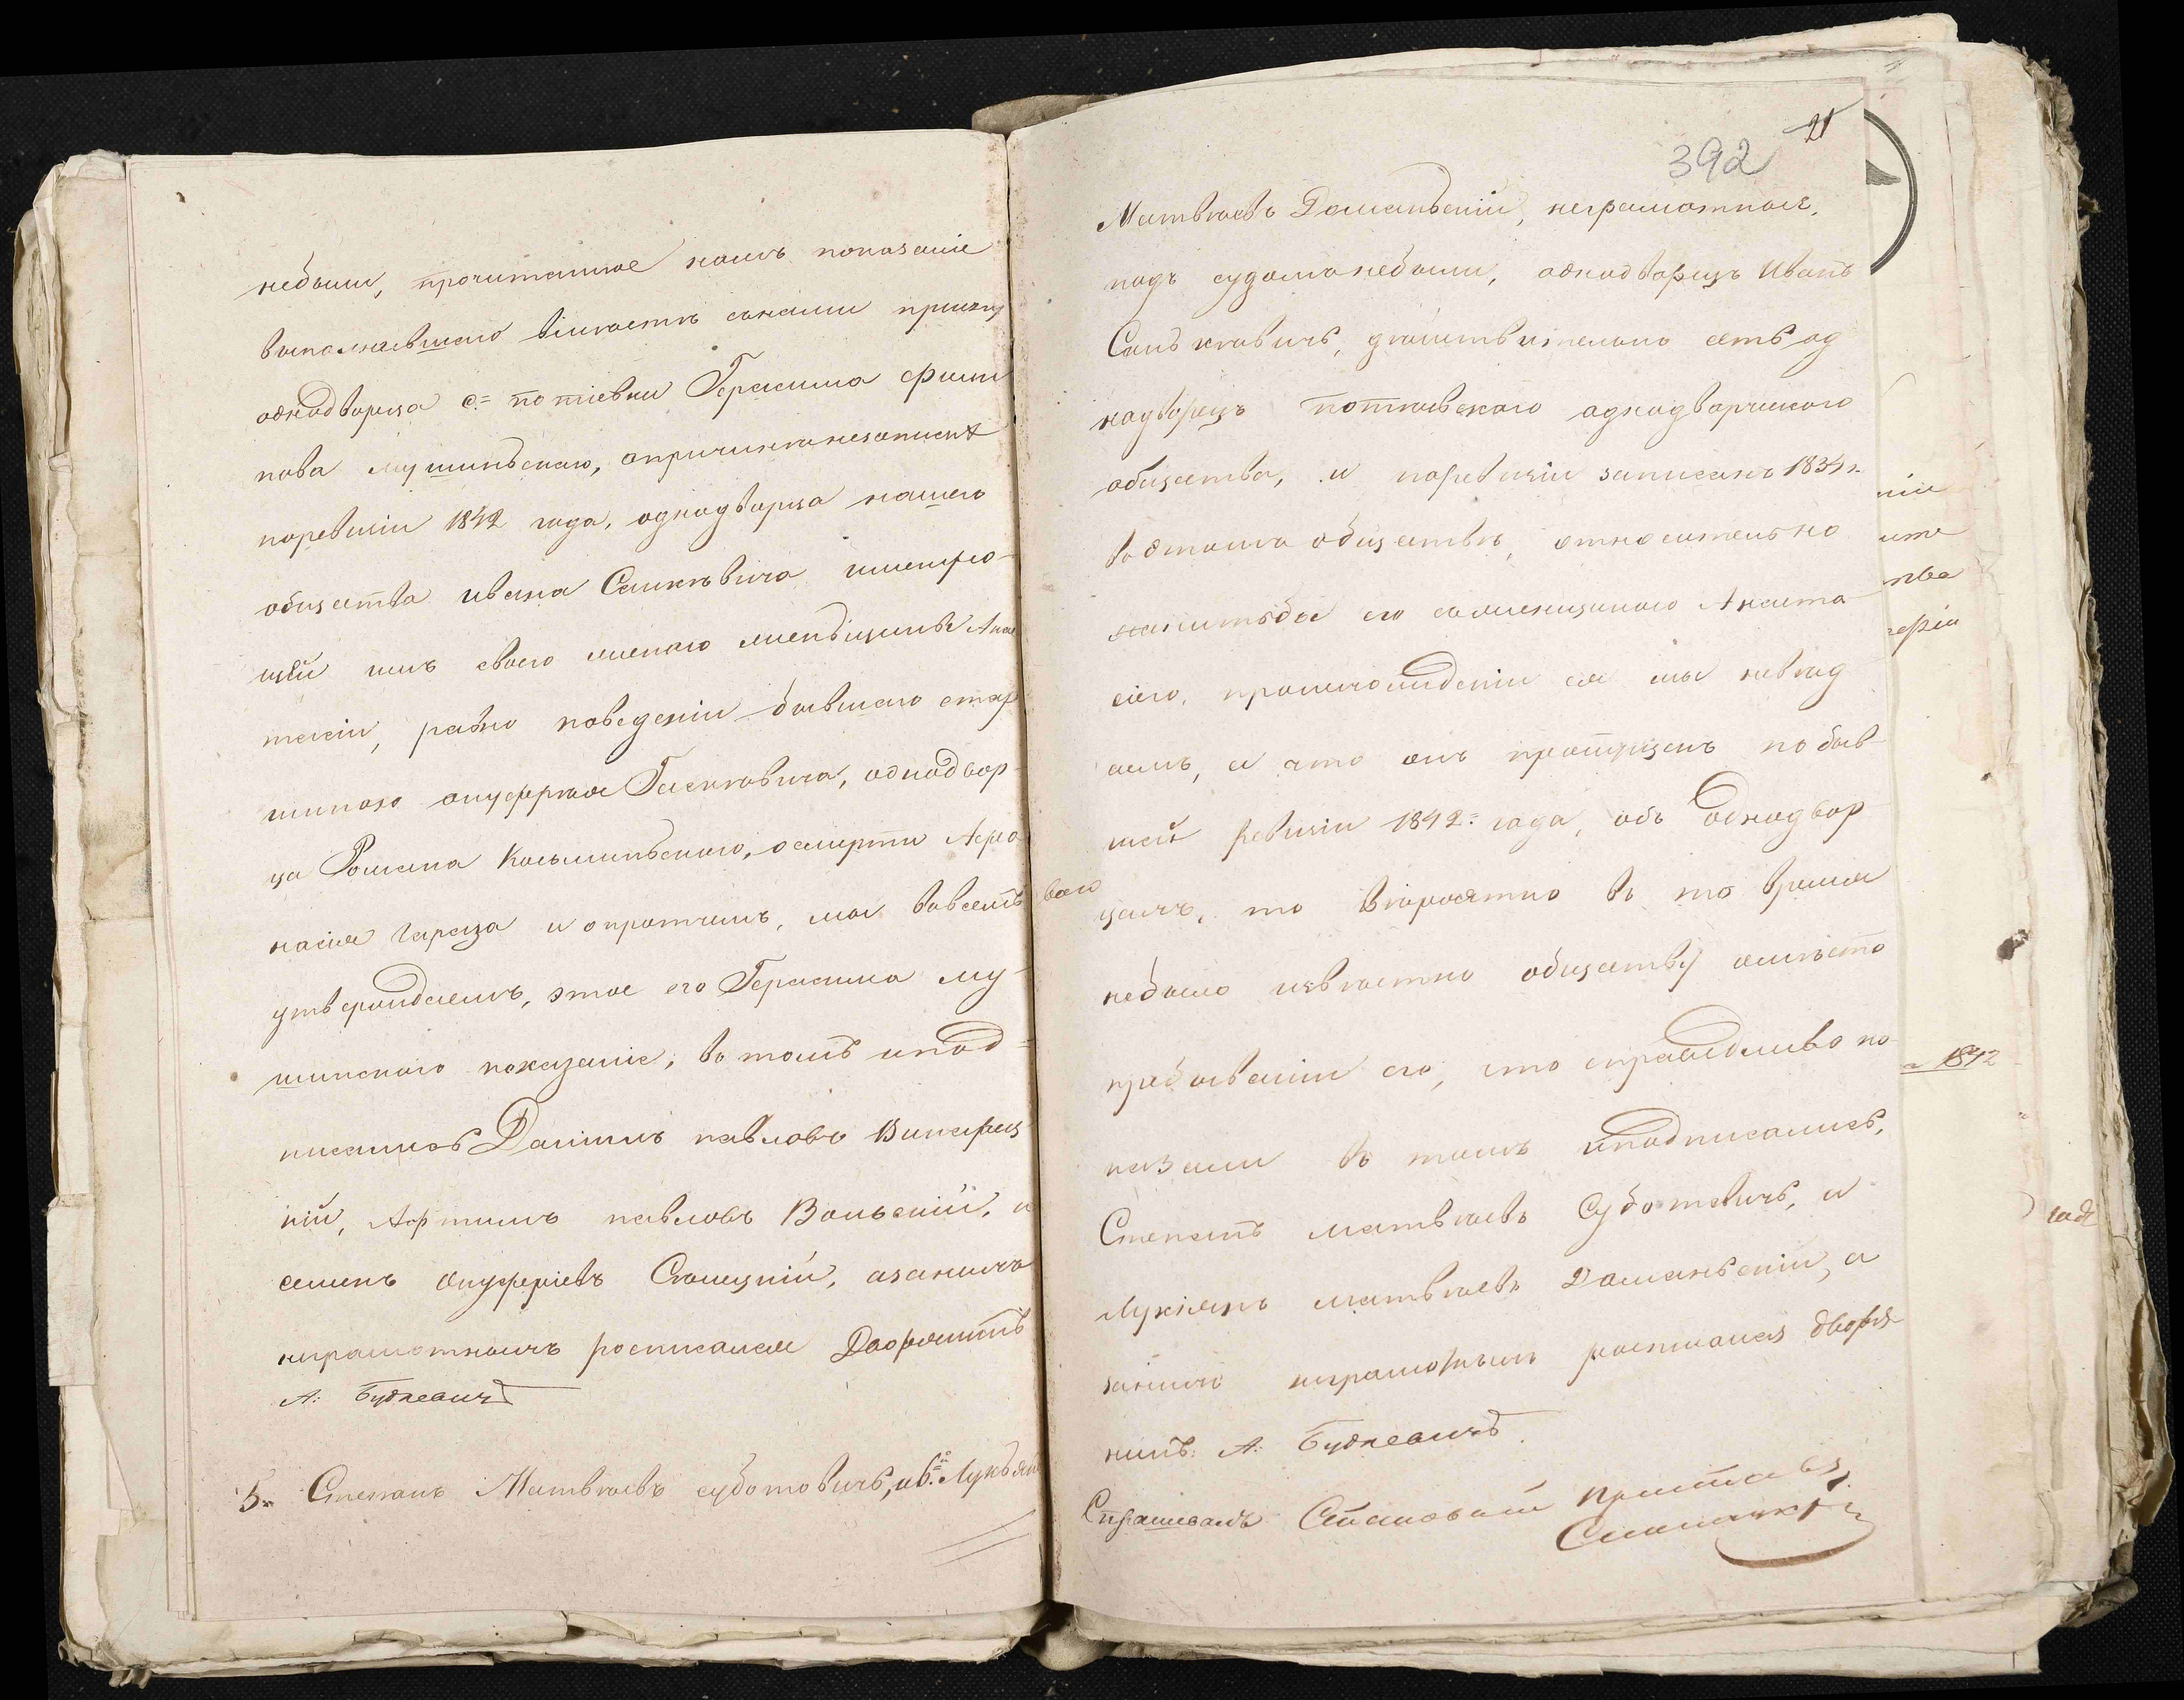 небыли, прочитанное намъ показаніе
выполнившаго вместѣ снами присягу
однодворца с= Потіевки Герасима Филип
пова Мушинскаго, опричинѣ незаписки
поревизіи 1842 года, однодворца нашего
общества Ивана Санкѣвича
мнѣніи, равно поведеніи бывшаго стар
шиною Онуфрія Гаскѣвича, однодвор-
ца Романа Козьминьскаго, осмерти Афа
насія Гараза и опротчемъ, мы вовсемъ
утверждаемъ, этое его Герасима Му-
шинскаго показаніе, въ томъ и под-
писались Даніилъ Павловъ
кій, Артимъ Павловъ Вольскій, и
Семенъ Онуфріевъ Стецкій, а за нихъ
неграмотныхъ росписался Дворянинъ
А: Будкевичъ
5. Степанъ Матвѣевъ Суботовичъ, и Лукьянъ
392 21
Матвѣевъ Доманьскій, неграмотные,
подъ судомъ небыли, однодворецъ Иванъ
Санькѣвичъ, дѣйствительно есть од
нодворецъ Потіевскаго однодворческаго
общества, и поревизіи записанъ 1834 г.
въ этомъ обществѣ, относительно
женитьбы его Анаста
сіею, произхожденіи ея мы невѣд
аемъ, а что онъ пропущенъ по быв-
шей ревизіи 1842= года, объ однодвор
цахъ, то вѣроятно въ то время
небыло извѣстно обществу о мѣсто
пребываніи его, что справедливо по
казали въ томъ и подписались,
Степанъ Матвѣевъ Суботовичъ, и
Лукіянъ Матвѣевъ Доманьскій, а
занихъ неграмотныхъ росписался дворя
нинъ: А: Будкевичъ
Спрашивалъ Становый Приставъ
1842